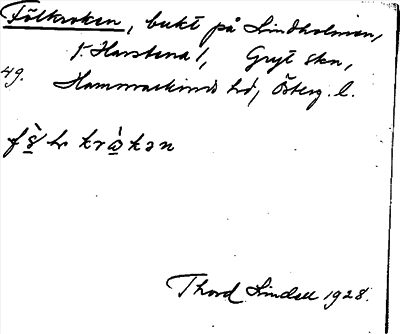 Fölkroken, bukt på Lindholmen,
V. Harstena 1, Gryt skn,
49. Hammarkinds hd, Österg. l.
Thord Lindell 1928.